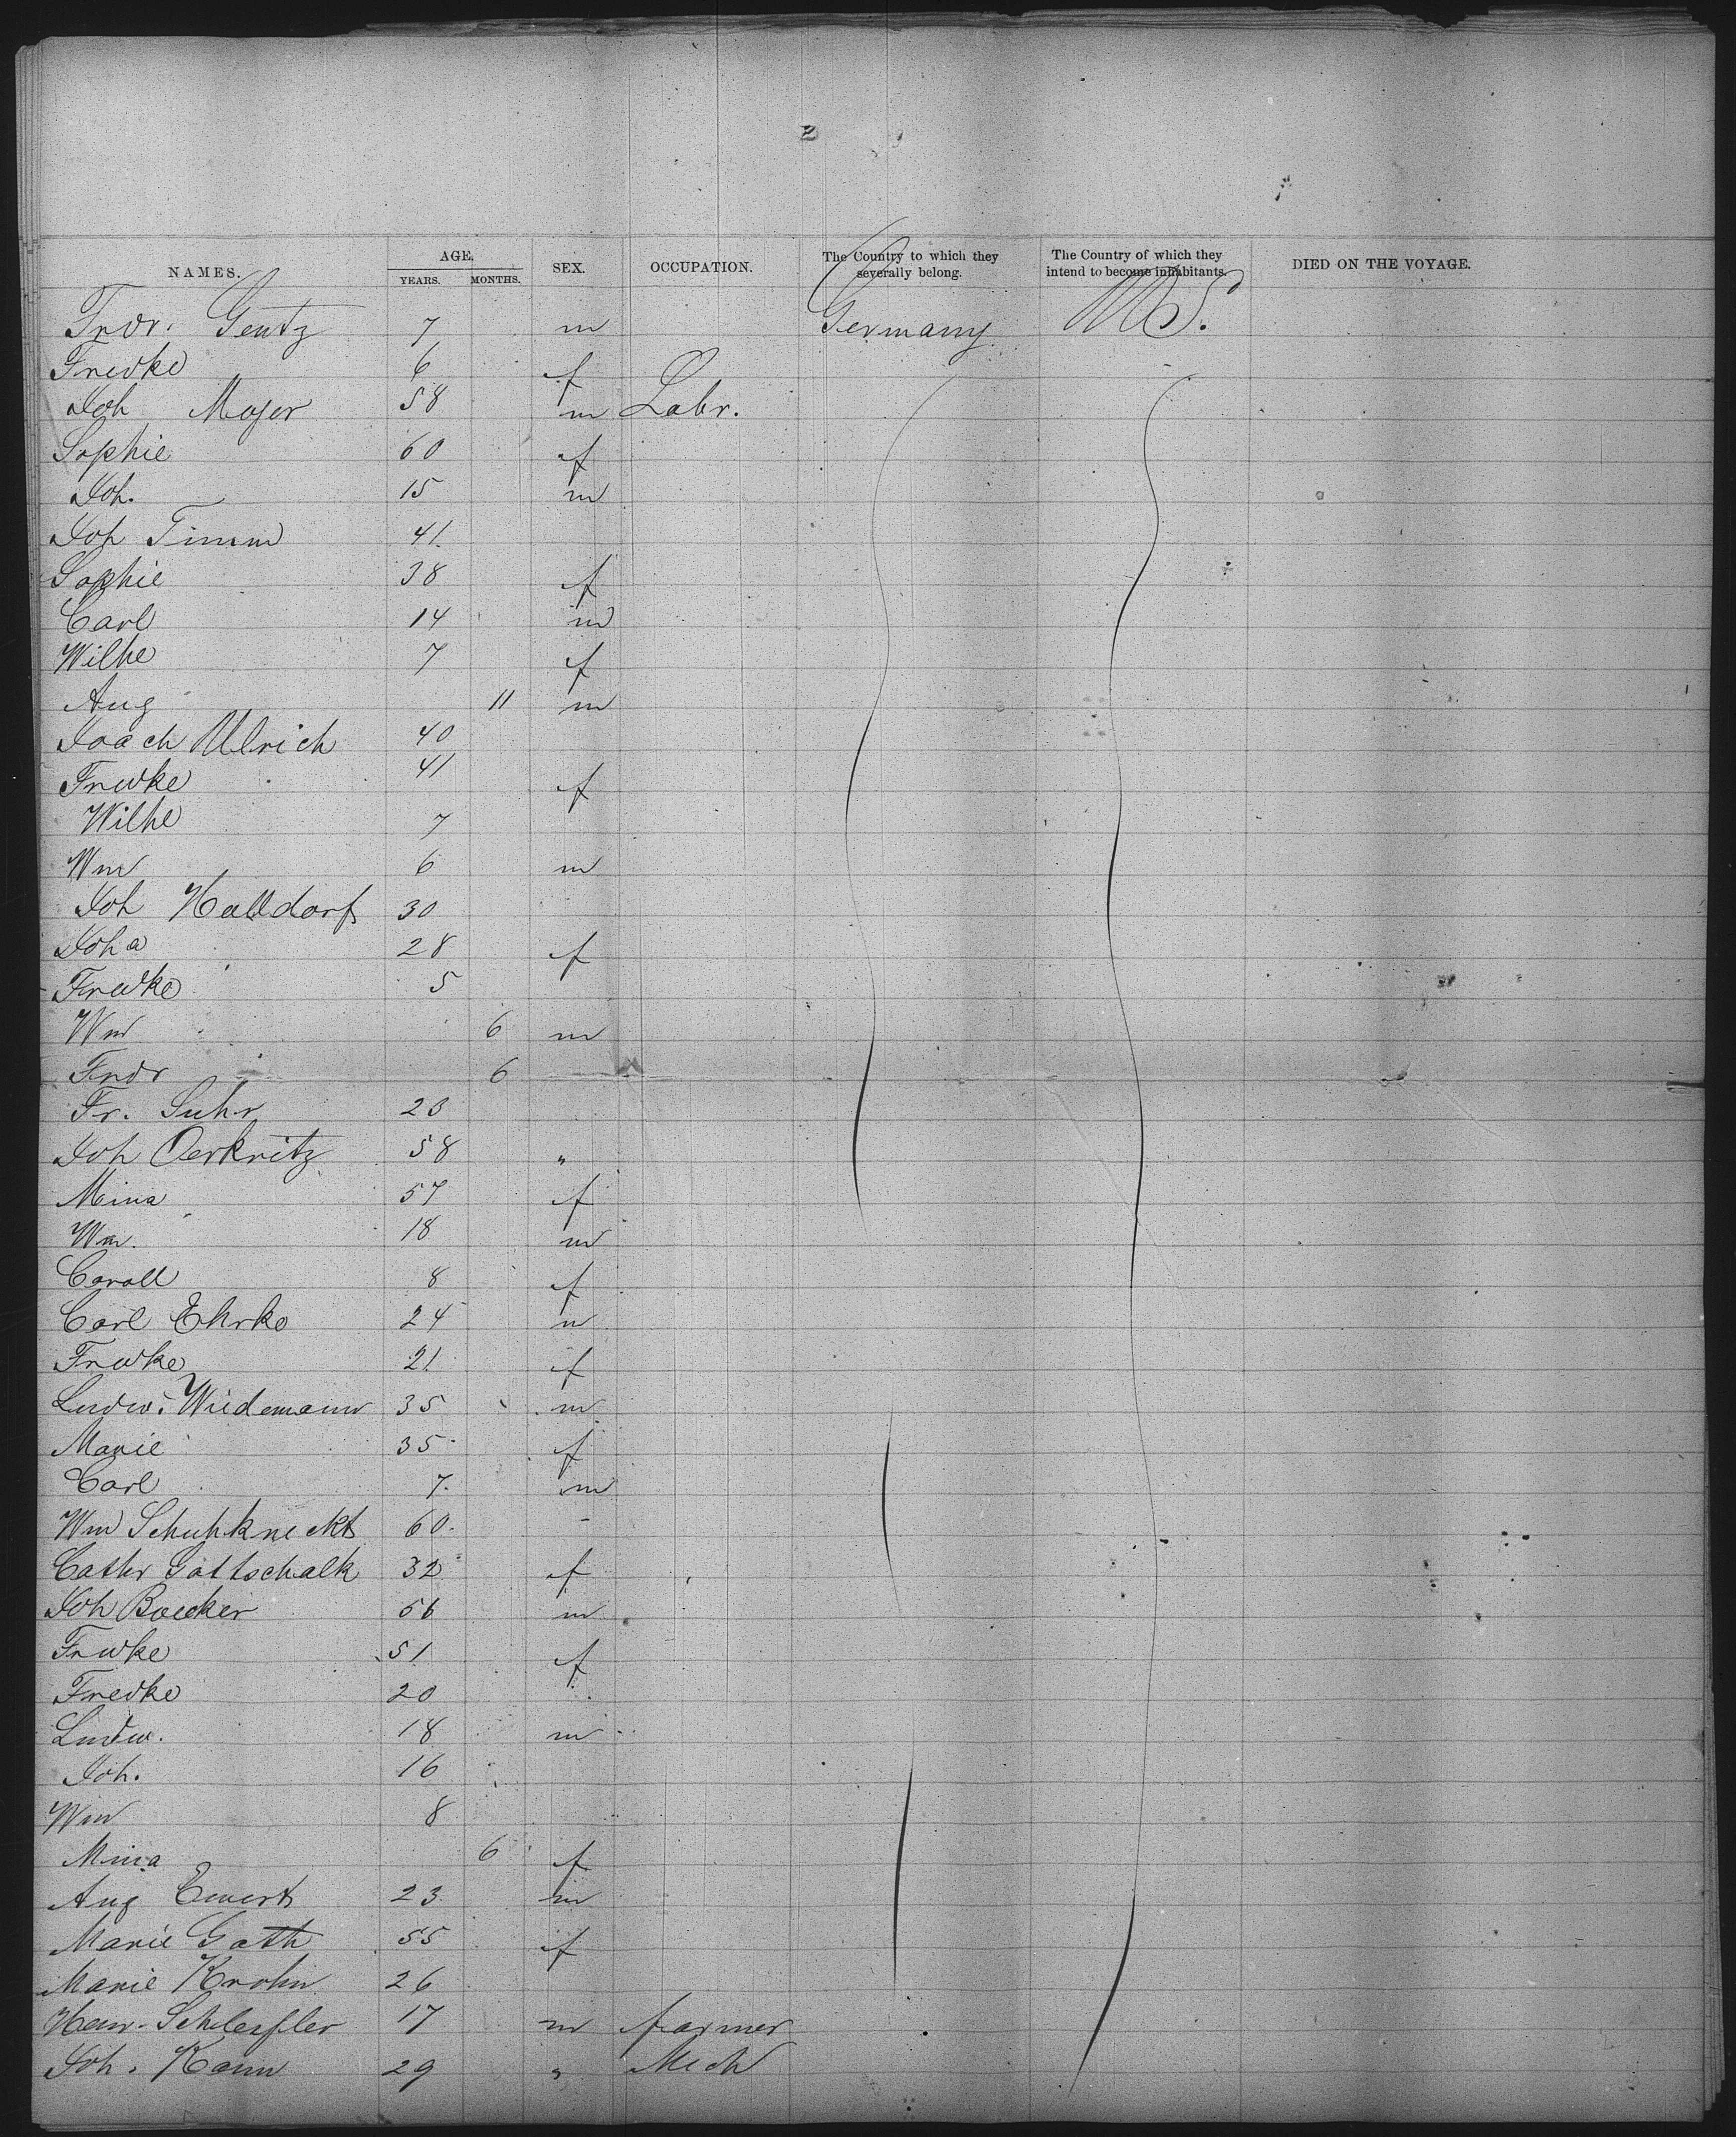 2
NAMES. AGE, YEARS. MONTHS. SEX. OCCUPATION. The Country to which they severally belong. The Country of which they intend to become inhabitants. DIED ON THE VOYAGE.
Frdr. Gentz 7 m Germany U.S.
Fredke 6 f
Joh Moger 58 m Labr.
Sophie 60 f
Joh. 15 m
Joh Timm 41
Sophie 38 f
Carl 14 m
Wilhe 7 f
Aug 11 m
Joach Ulrich 40
Fredke 41 f
Wilhe 7
Wm 6 m
Joh Halldorf 30
Joha 28 f
Fredke 5
Wm 6 m
Frdr 6
Fr. Suhr 23
Joh Oerkritz 58 "
Mina 57 f
Wm. 18 m
Caroll 8 f
Carl Ehrke 24 m
Fredke 21 f
Ludw. Wiedemann 35 m
Marie 35 f
Carl 7 m
Wm Schuhkneckt 60 -
Cathr Gottschalk 32 f
Joh Boecker 56 m
Fredke 51 f
Fredke 20
Ludw. 18 m
Joh. 16
Wm 8
Mina 6 f
Aug Ewert 23 m
Marie Gath 55 f
Marie Krohn 26
Heinr. 17 m farmer
Joh. Kann 29 " Mech